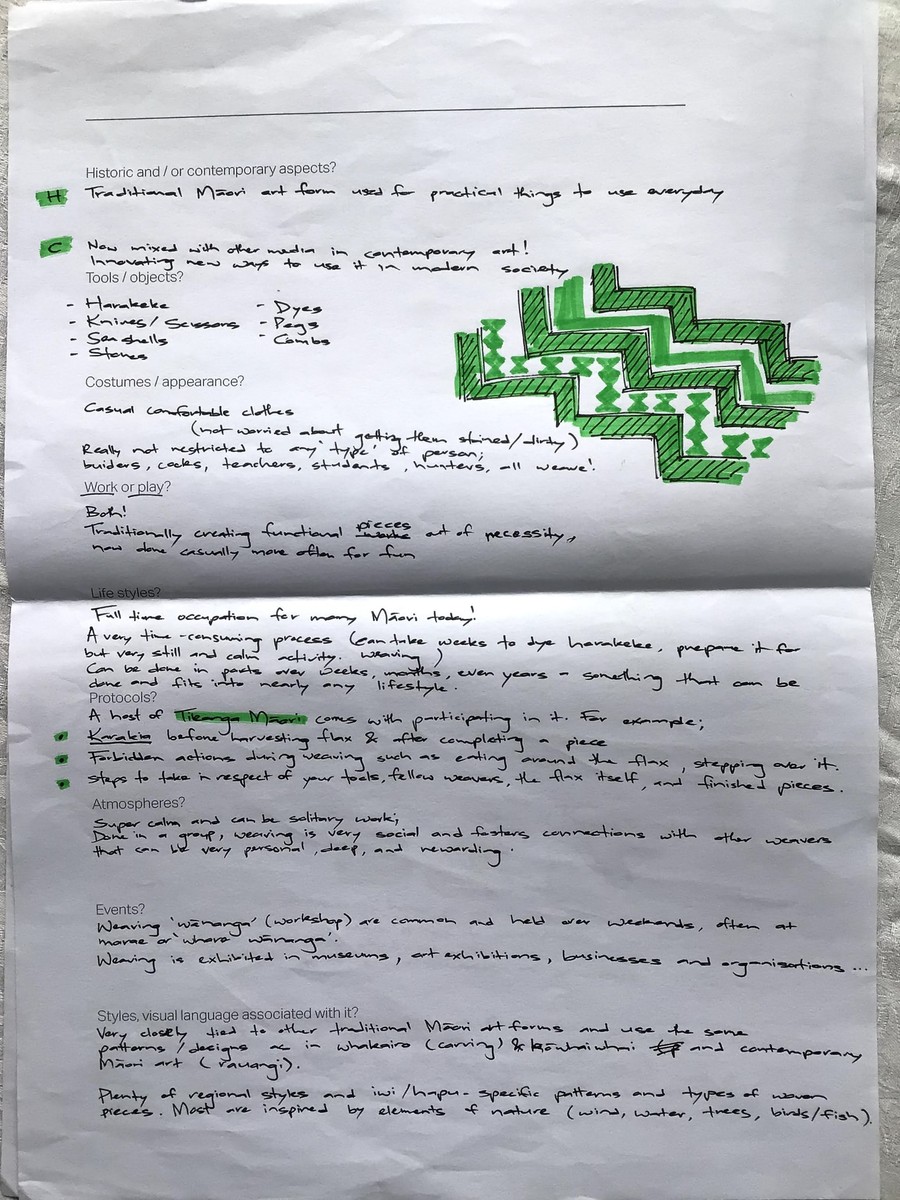 Historic and / or contemporary aspects?
H Traditional Māori art form used for practical things to use everyday
C Now mixed with other media in contemporary art!
Innovating new ways to use it in modern society
Tools / objects?
- Harakeke
- Knives / Scissors
- Sea shells
- Stones
- Dyes
- Pegs
- Combs
Costumes / appearance?
Casual comfortable clothes
(not worried about getting them stained / dirty)
Really not restricted to any 'type' of person;
buiders, cooks, teachers, students, hunters, all weave!
Work or play?
Both!
Traditionally creating functional pieces out of necessity,
now done casually more often for fun
Life styles?
Full time occupation for many Māori today!
A very time-consuming process (can take weeks to dye harakeke, prepare it for
but very still and calm activity. weaving)
Can be done in parts over weeks, months, even years - something that can be
done and fits into nearly any lifestyle.
Protocols?
A host of Tikanga Māori comes with participating in it. For example;
• Karakia before harvesting flax & after completing a piece
• Forbidden actions during weaving such as eating around the flax, stepping over it.
• steps to take in respect of your tools, fellow weavers, the flax itself, and finished pieces.
Atmospheres?
Super calm and can be solitary work;
Done in a group, weaving is very social and fosters connections with other weavers
that can be very personal, deep, and rewarding.
Events?
Weaving 'wānanga' (workshop) are common and held over weekends, often at
marae or 'whare wānanga'.
Weaving is exhibited in museums, art exhibitions, businesses and organisations ...
Styles, visual language associated with it?
Very closely tied to other traditional Māori art forms and use the same
patterns / designs as in whakairo (carving) & kōwhaiwhai and contemporary
Māori art (rauangi).
Plenty of regional styles and iwi / hapu - specific patterns and types of woven
pieces. Most are inspired by elements of nature (wind, water, trees, birds/fish).